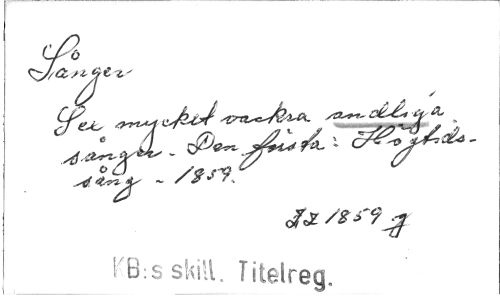 Sånger
See mycket vackra andliga
sånger. Den första: Högtids-
sång - 1859.
1859
KB:s skill. Titelreg.